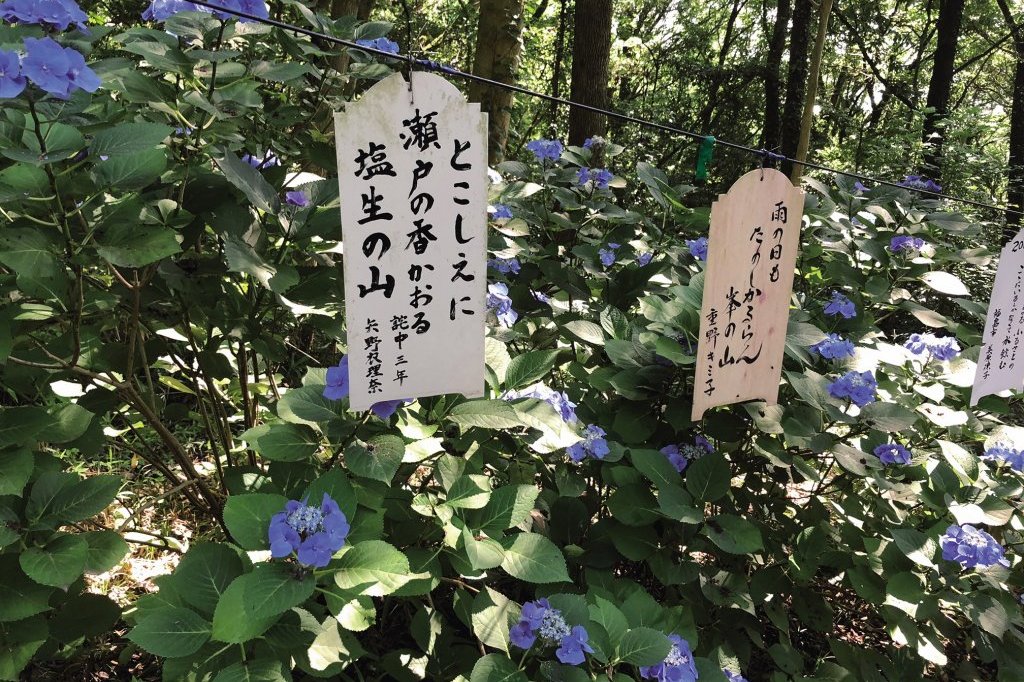 とこしえに
瀬戸の香かおる
塩生の山
詫中三年
矢野枝理奈
雨の日も
たのしからん
峯の山
重野キミ子